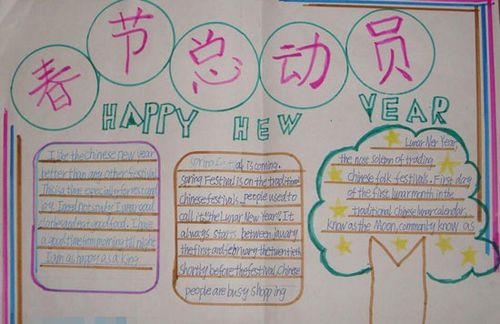 春节总动员
HAPPY HEW YEAR
I like the chinese new year
better than any other festival
This is a time especially for rest and
joy. I
good
clothes and eat good food. I have
a good time from morning till night
I am as happy as a king
is coming.
spring Festival is on the traditional
Chinese festivals. people used to
call it "the Lunar New Years". It
always starts between January
the first and February the twentieth
Shortly before the festival, Chinese
people are busy shopping
Lunar New Year,
the most solemn of trading
Chinese folk festivals. First day
of the first lunar month in the
traditional Chinese lunar calendar,
know as the Moon, commonly know as